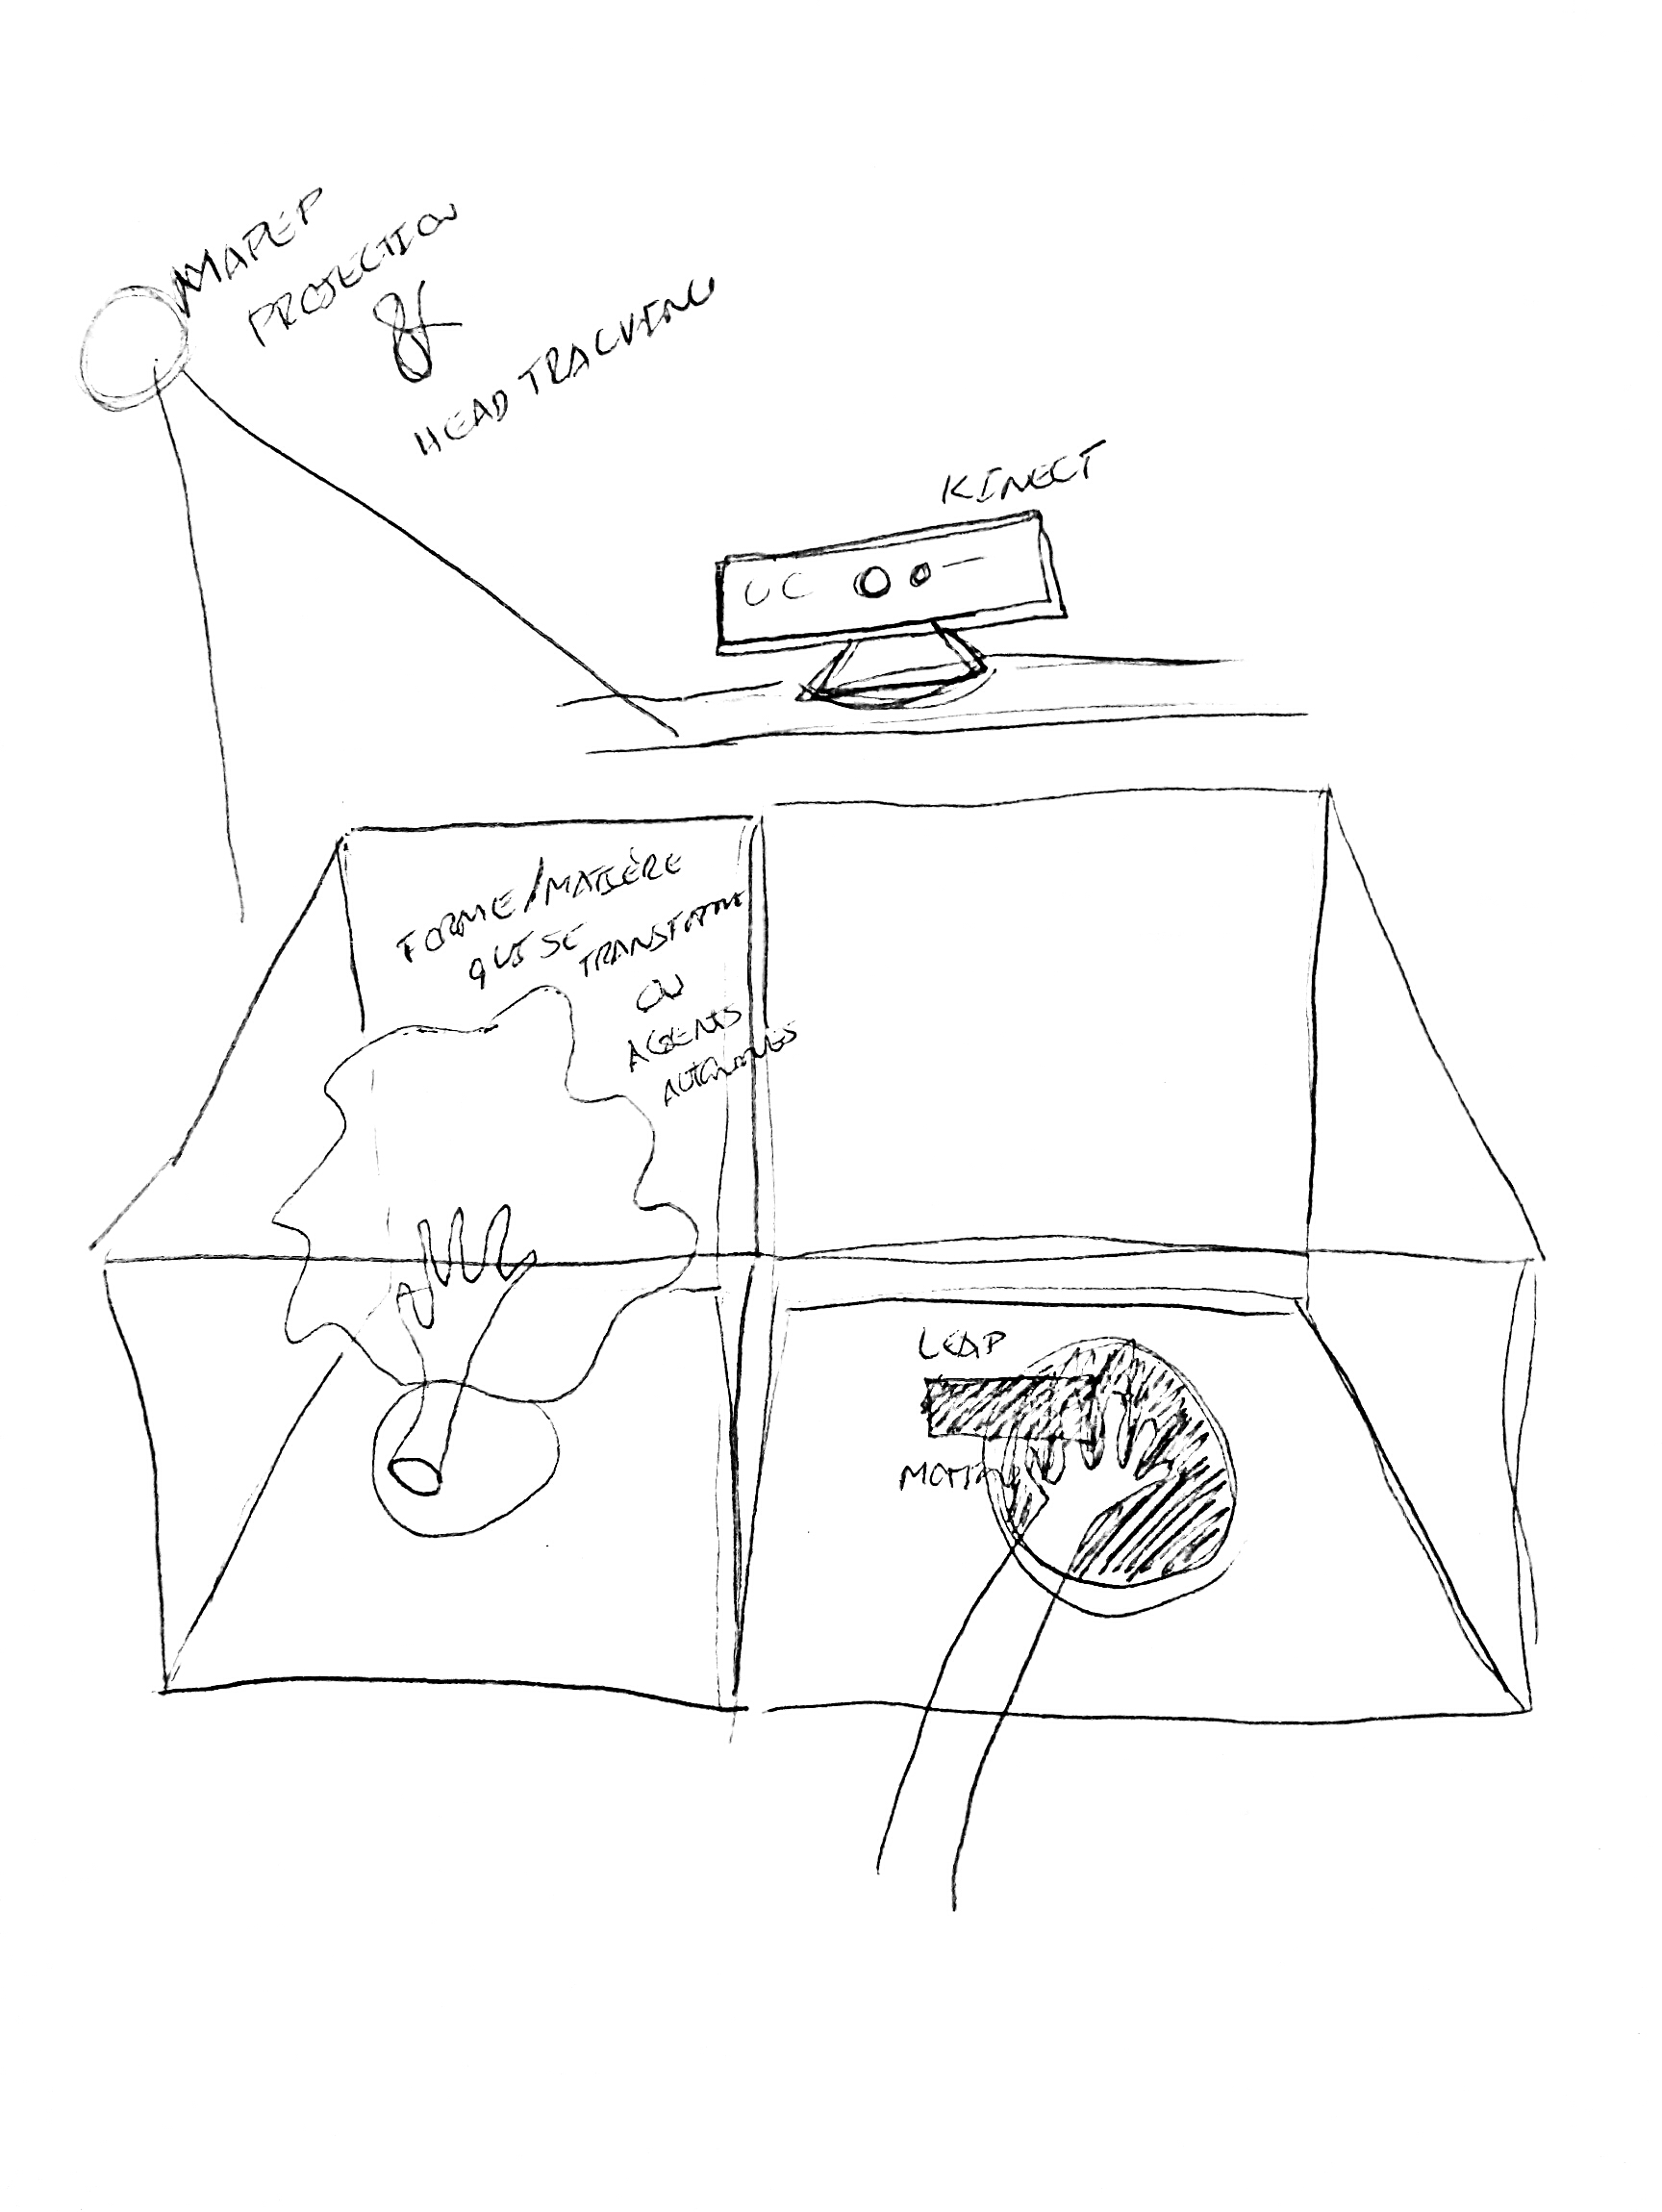 MAPEP
PROJECTION
&
HEAD TRACKING
KINECT
FORME/MATIÈRE
QUI SE
TRANSFORME
OU
AGENTS
AUTONOMES
LEAP
MOTION